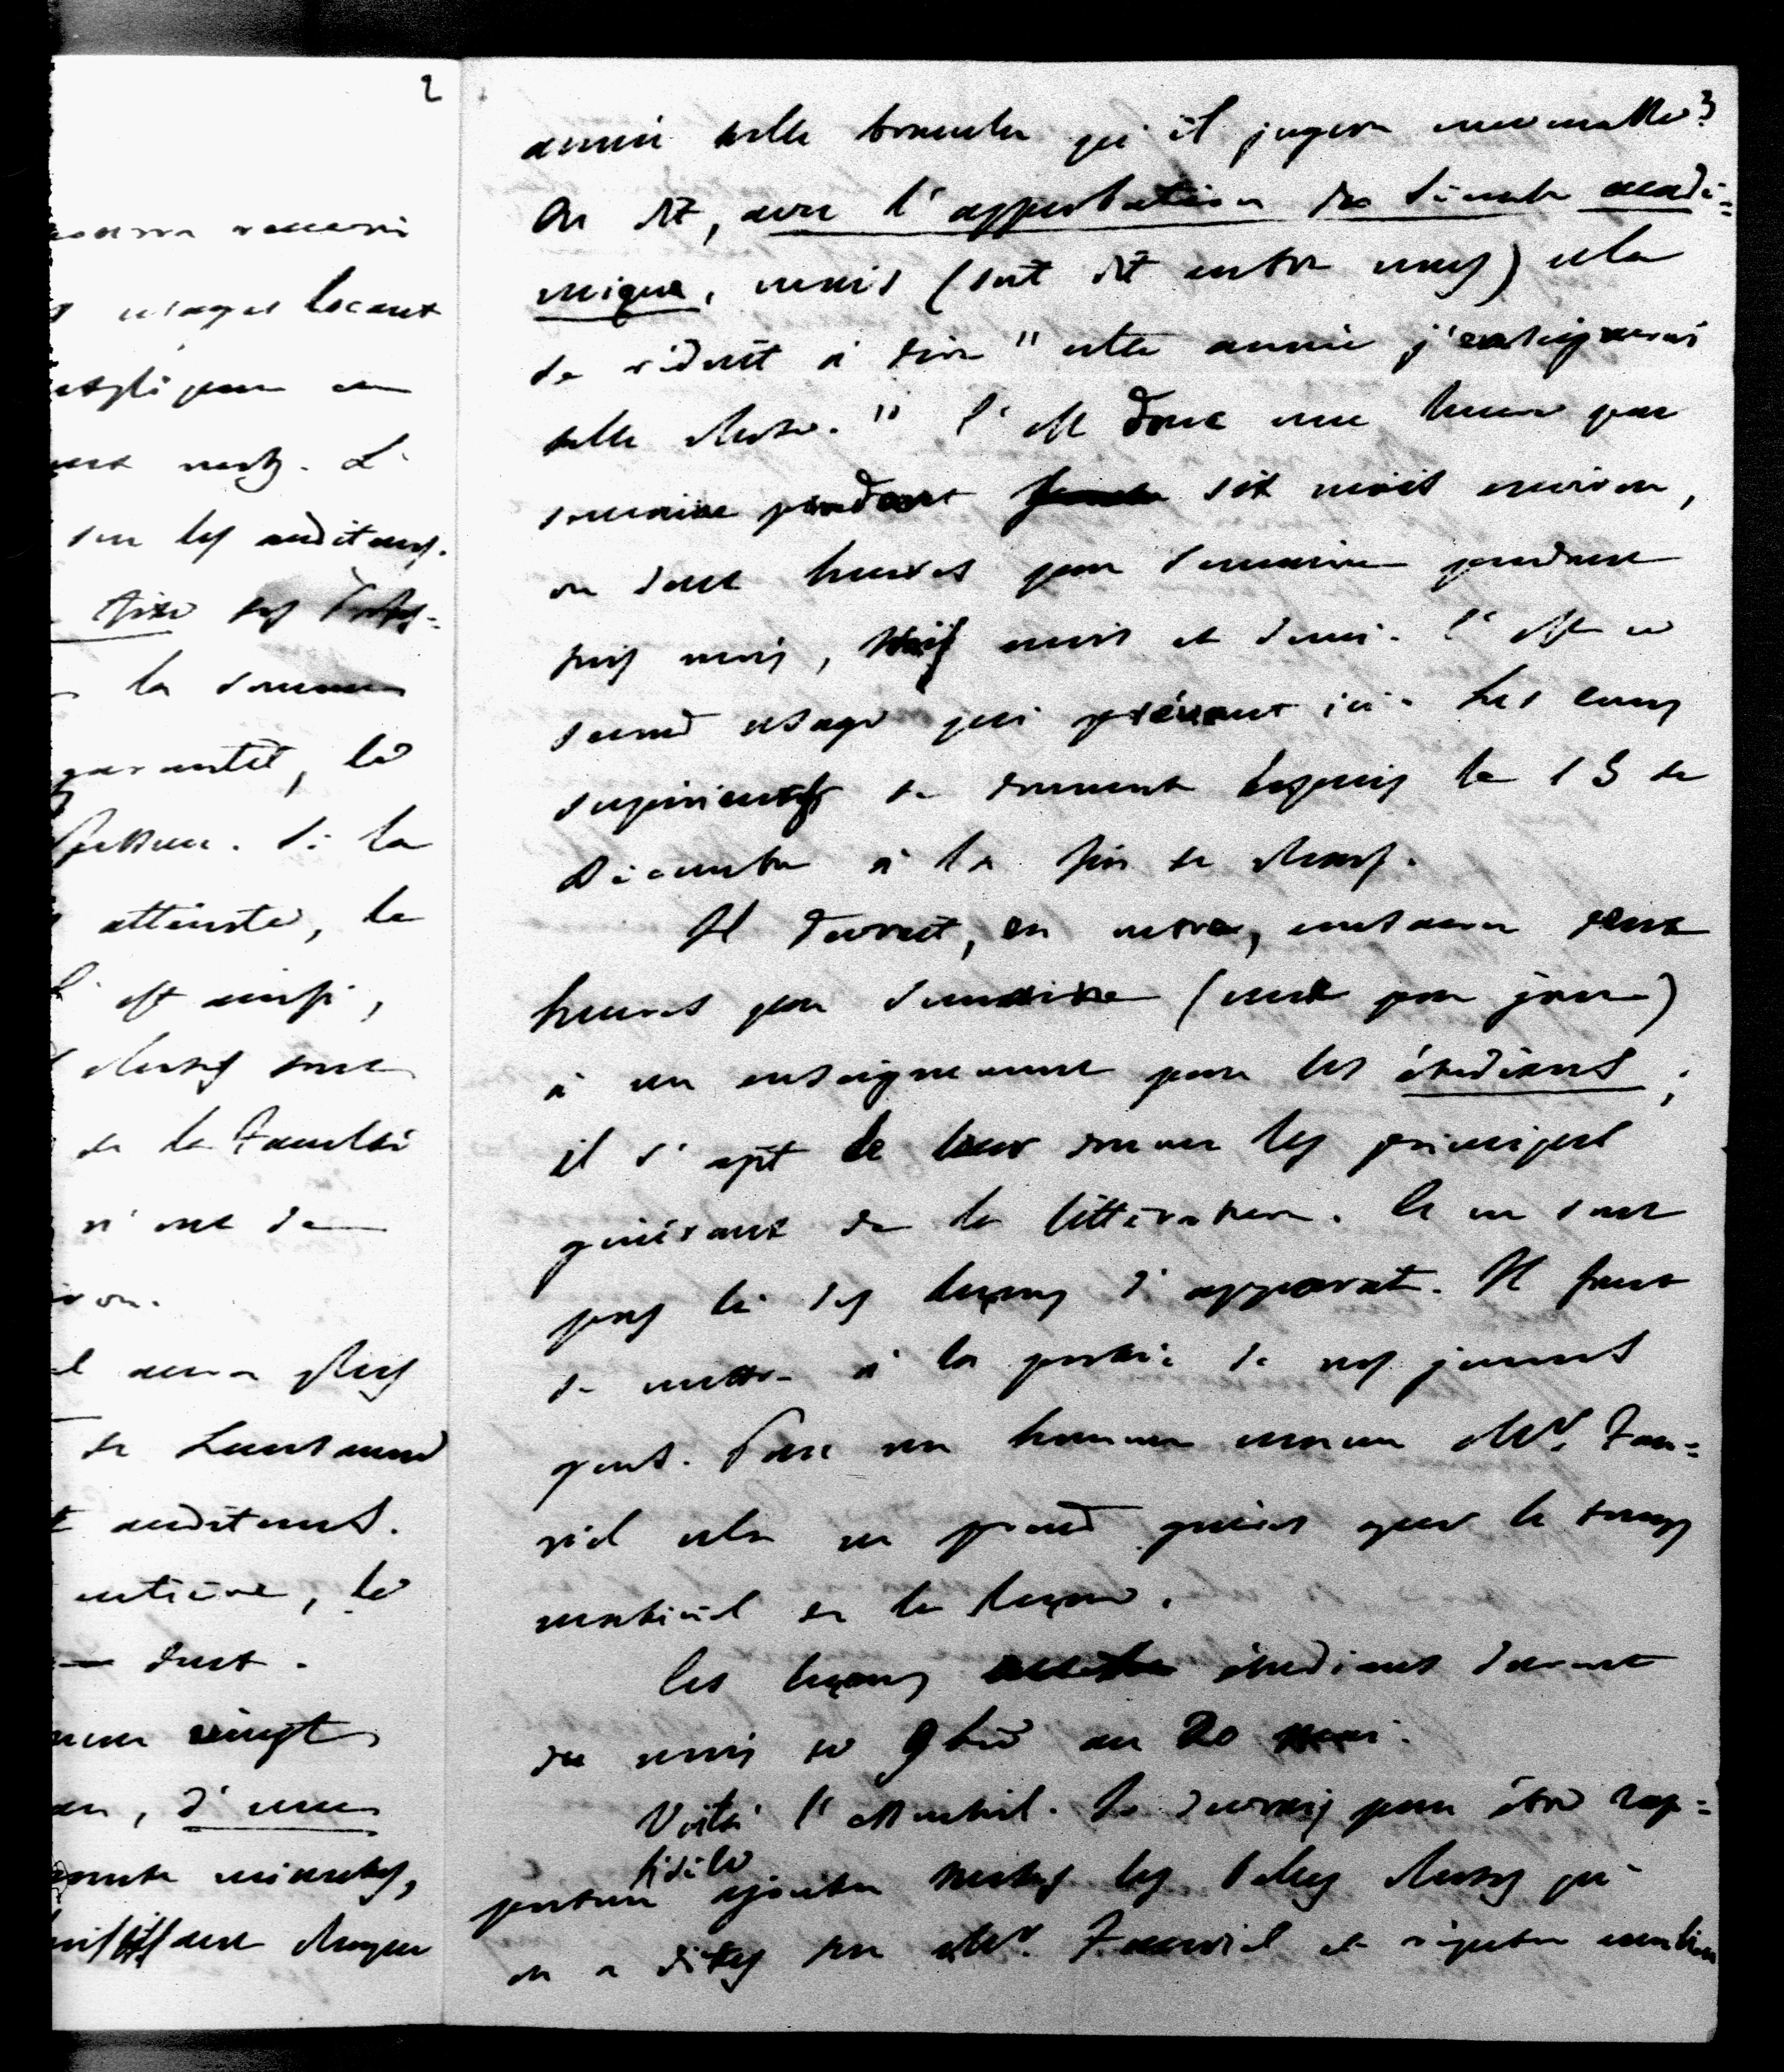 2
usages locaux
L'
sur les auditeurs.
fixe ses
la somme
garantit, le
fesseur. Si la
atteinte, le
est ainsi,
choses sont
de la Faculté
n'ont de
aura plus
de Lausanne
auditeurs.
entière, le
dust.
vingt
, d'une
minutes,
chaque
3
année telle branche qu'il jugera convenable.
On dit, avec l'approbation du Sénat acadé=
mique, mais (soit dit entre nous) cela
se réduit à dire "cette année j'enseignerai
telle chose." C'est donc une heure par
semaine pendant six mois environ,
ou deux heures par semaine pendant
trois mois, trois mois et demi. C'est ce
second usage qui prévaut ici. Les cours
supérieurs se donnent depuis le 15 de
Décembre à la fin de Mars.
Il devrait, en outre, consacrer deux
heures par semaine (une par jour)
à un enseignement pour les étudians ;
il s'agit de leur donner les principes
généraux de la littérature. Ce ne sont
pas là des leçons d'apparat. Il faut
se mettre à la portée de nos jeunes
gens. Pour un homme comme Mr. Fau=
riel cela ne prend guères que le temps
matériel de la leçon.
Ces leçons étudians durent
du mois de 9bre au 20 mai.
Voilà l'essentiel. Je devrais pour être rap=
porteur fidèle ajouter toutes les belles choses qu'
on a dites sur Mr. Fauriel et répéter combien